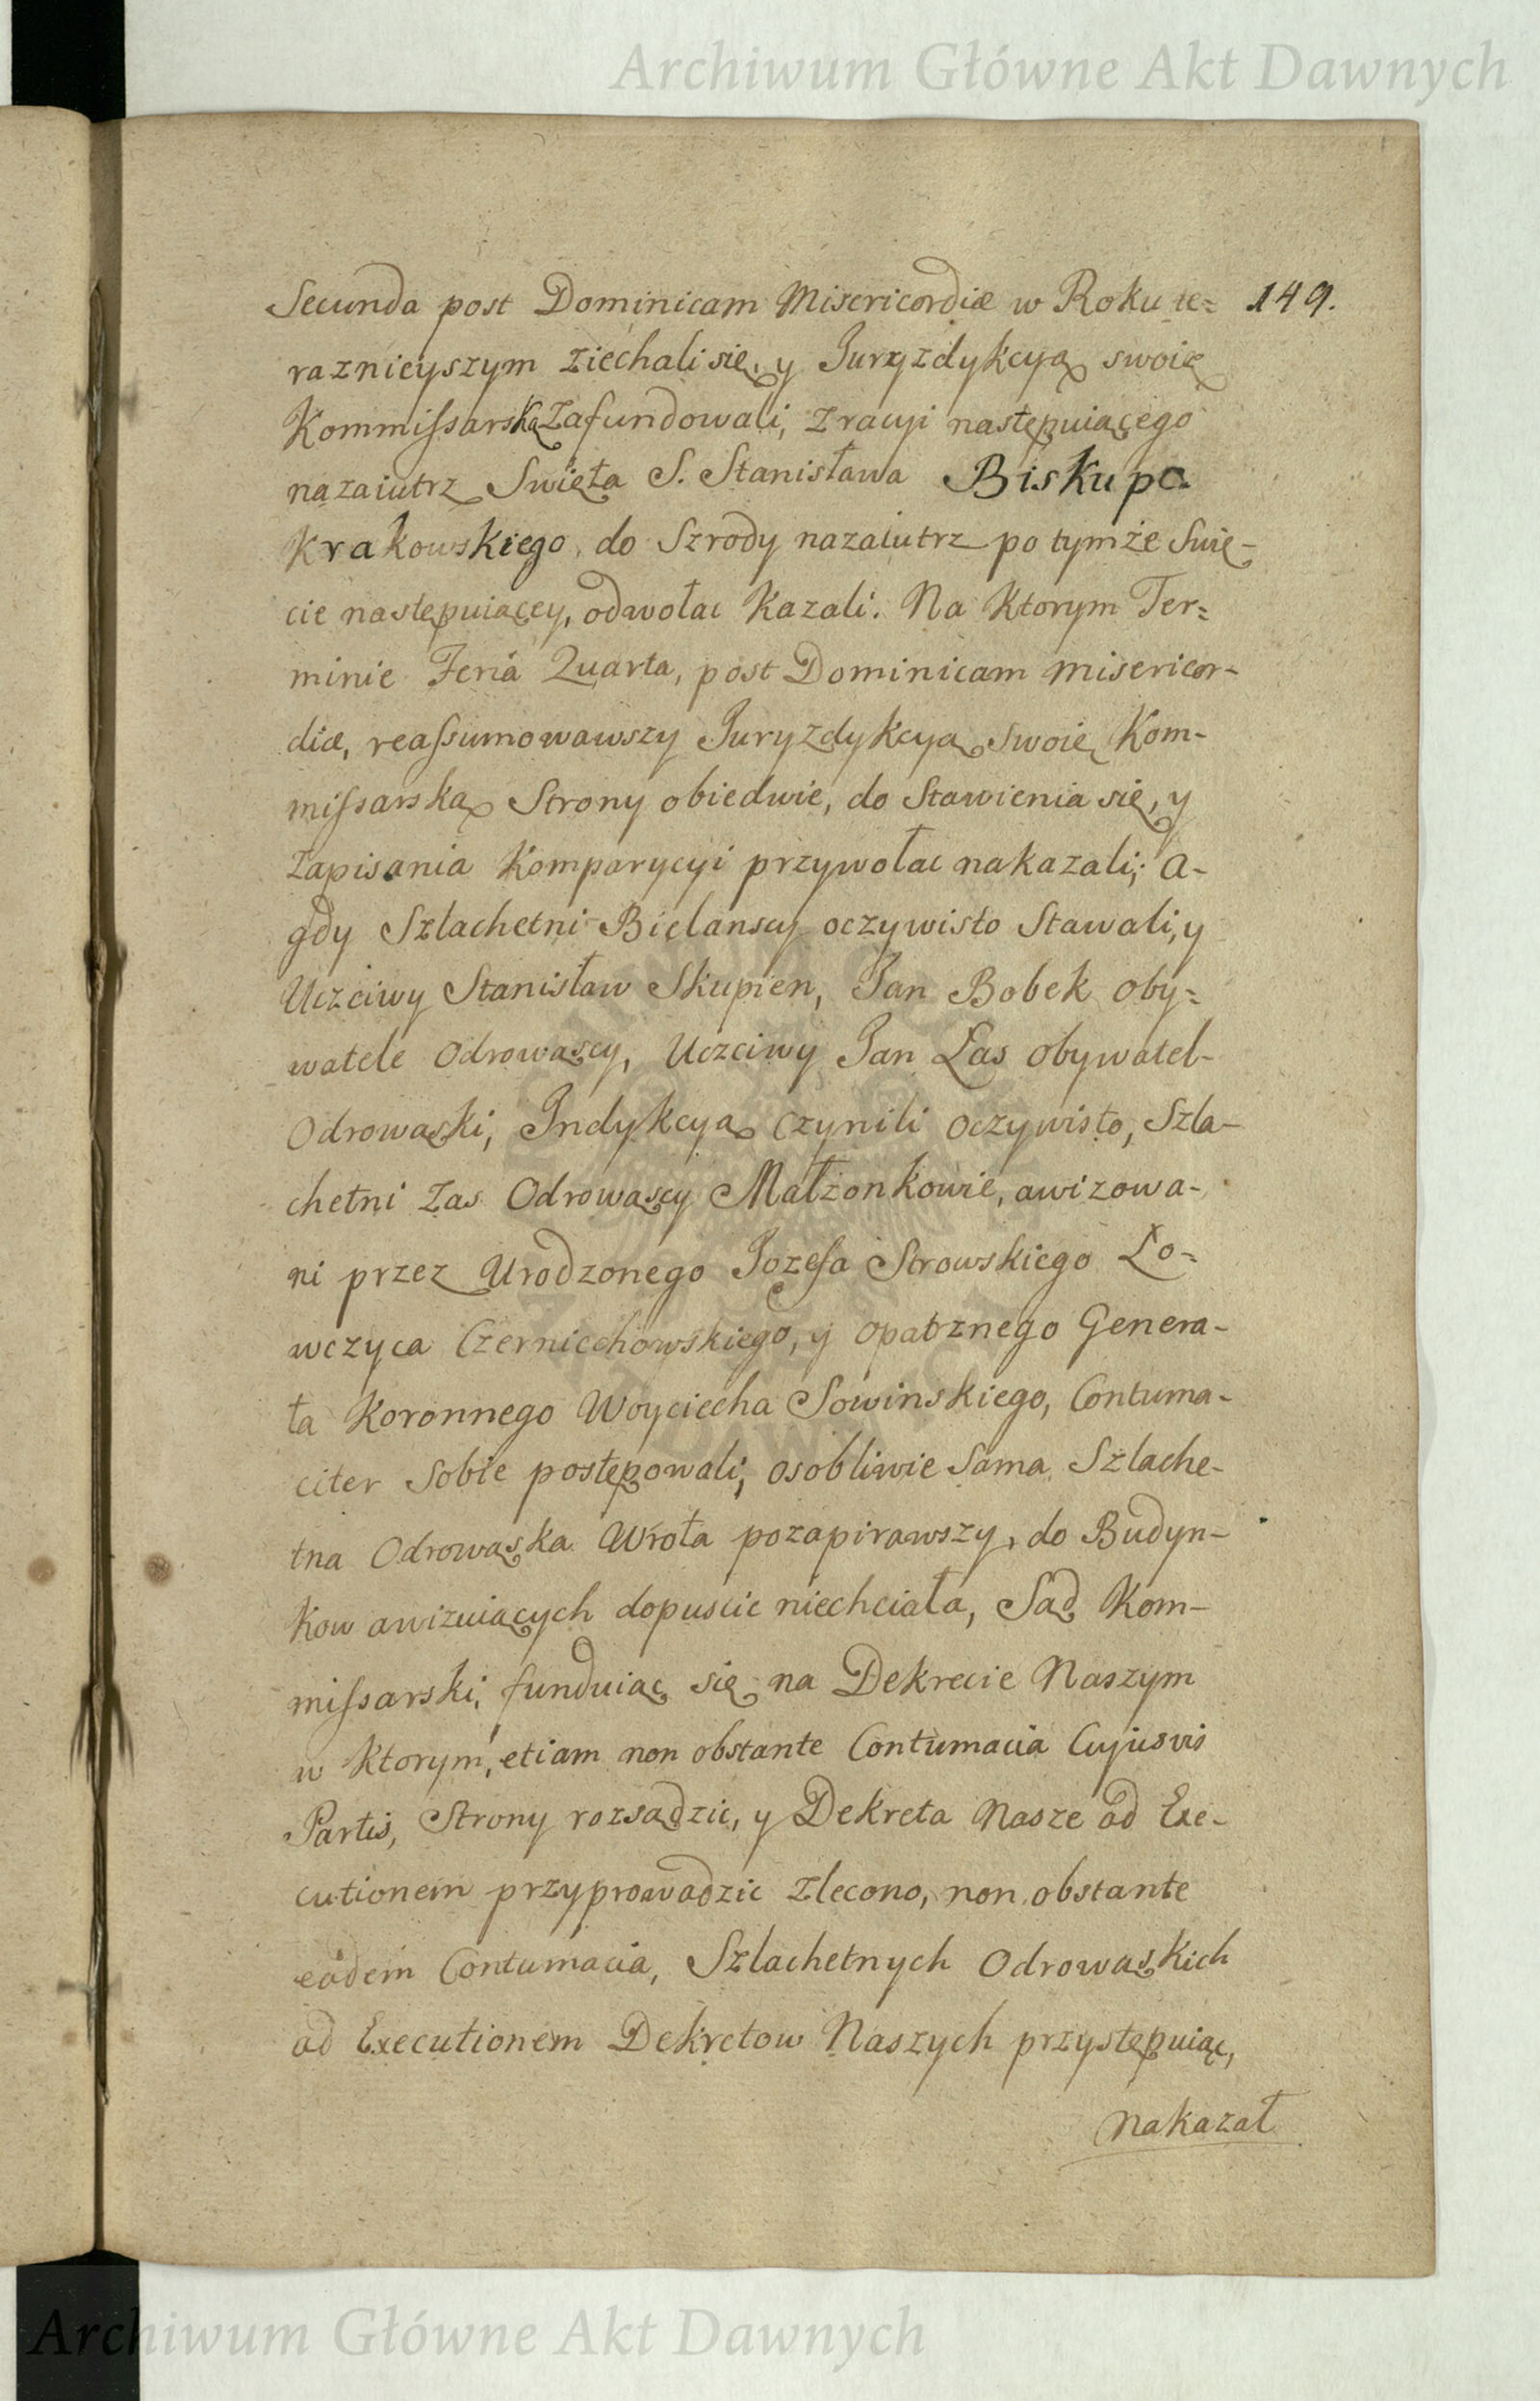 Archiwum Główne Akt Dawnych
Secunda post Dominicam Misericordiæ w Roku te= 149.
raznieyszym ziechali się, y Juryzdykcyą swoię
Kommissarską zafundowali, z racyi następuiącego
nazaiutrz Swięta S. Stanisława Biskupa
Krakowskiego, do Szrody nazaiutrz po tymże Swię-
cie następuiącey, odwołac kazali. Na ktorym Ter=
minie Feria Quarta, post Dominicam Misericor-
diæ, reassumowawszy Juryzdykcyą swoię Kom-
missarską Strony obiedwie, do Stawienia się, y
zapisania Komparycyi przywołac nakazali; a-
gdy Szlachetni Bielanscy oczywisto Stawali, y
Uczciwy Stanisław Skupien, Jan Bobek oby=
watele Odrowąscy, Uczciwy Jan Las obywatel-
Odrowąski, Indykcyą czynili oczywisto, Szla-
chetni zas Odrowąscy Małżonkowie, awizowa-
ni przez Urodzonego Jozefa Strowskiego Lo=
wczyca Czerniechowskiego, y opatrznego Genera-
ła Koronnego Woyciecha Sowinskiego, Contuma-
citer sobie postępowali; osobliwie sama Szlache-
tna Odrowąska Wrota pozapirawszy, do Budyn-
kow awizuiących dopuscic niechciała, Sąd Kom-
missarski, funduiąc się na Dekrecie Naszym
w ktorym, etiam non obstante Contumacia Cujusvis
Partis, Strony rozsądzic, y Dekreta Nasze ad Exe-
cutionem przyprowadzic zlecono, non obstante
eadem Contumacia, Szlachetnych Odrowąskich
ad Executionem Dekretow Naszych przystępuiąc,
nakazał
Archiwum Główne Akt Dawnych